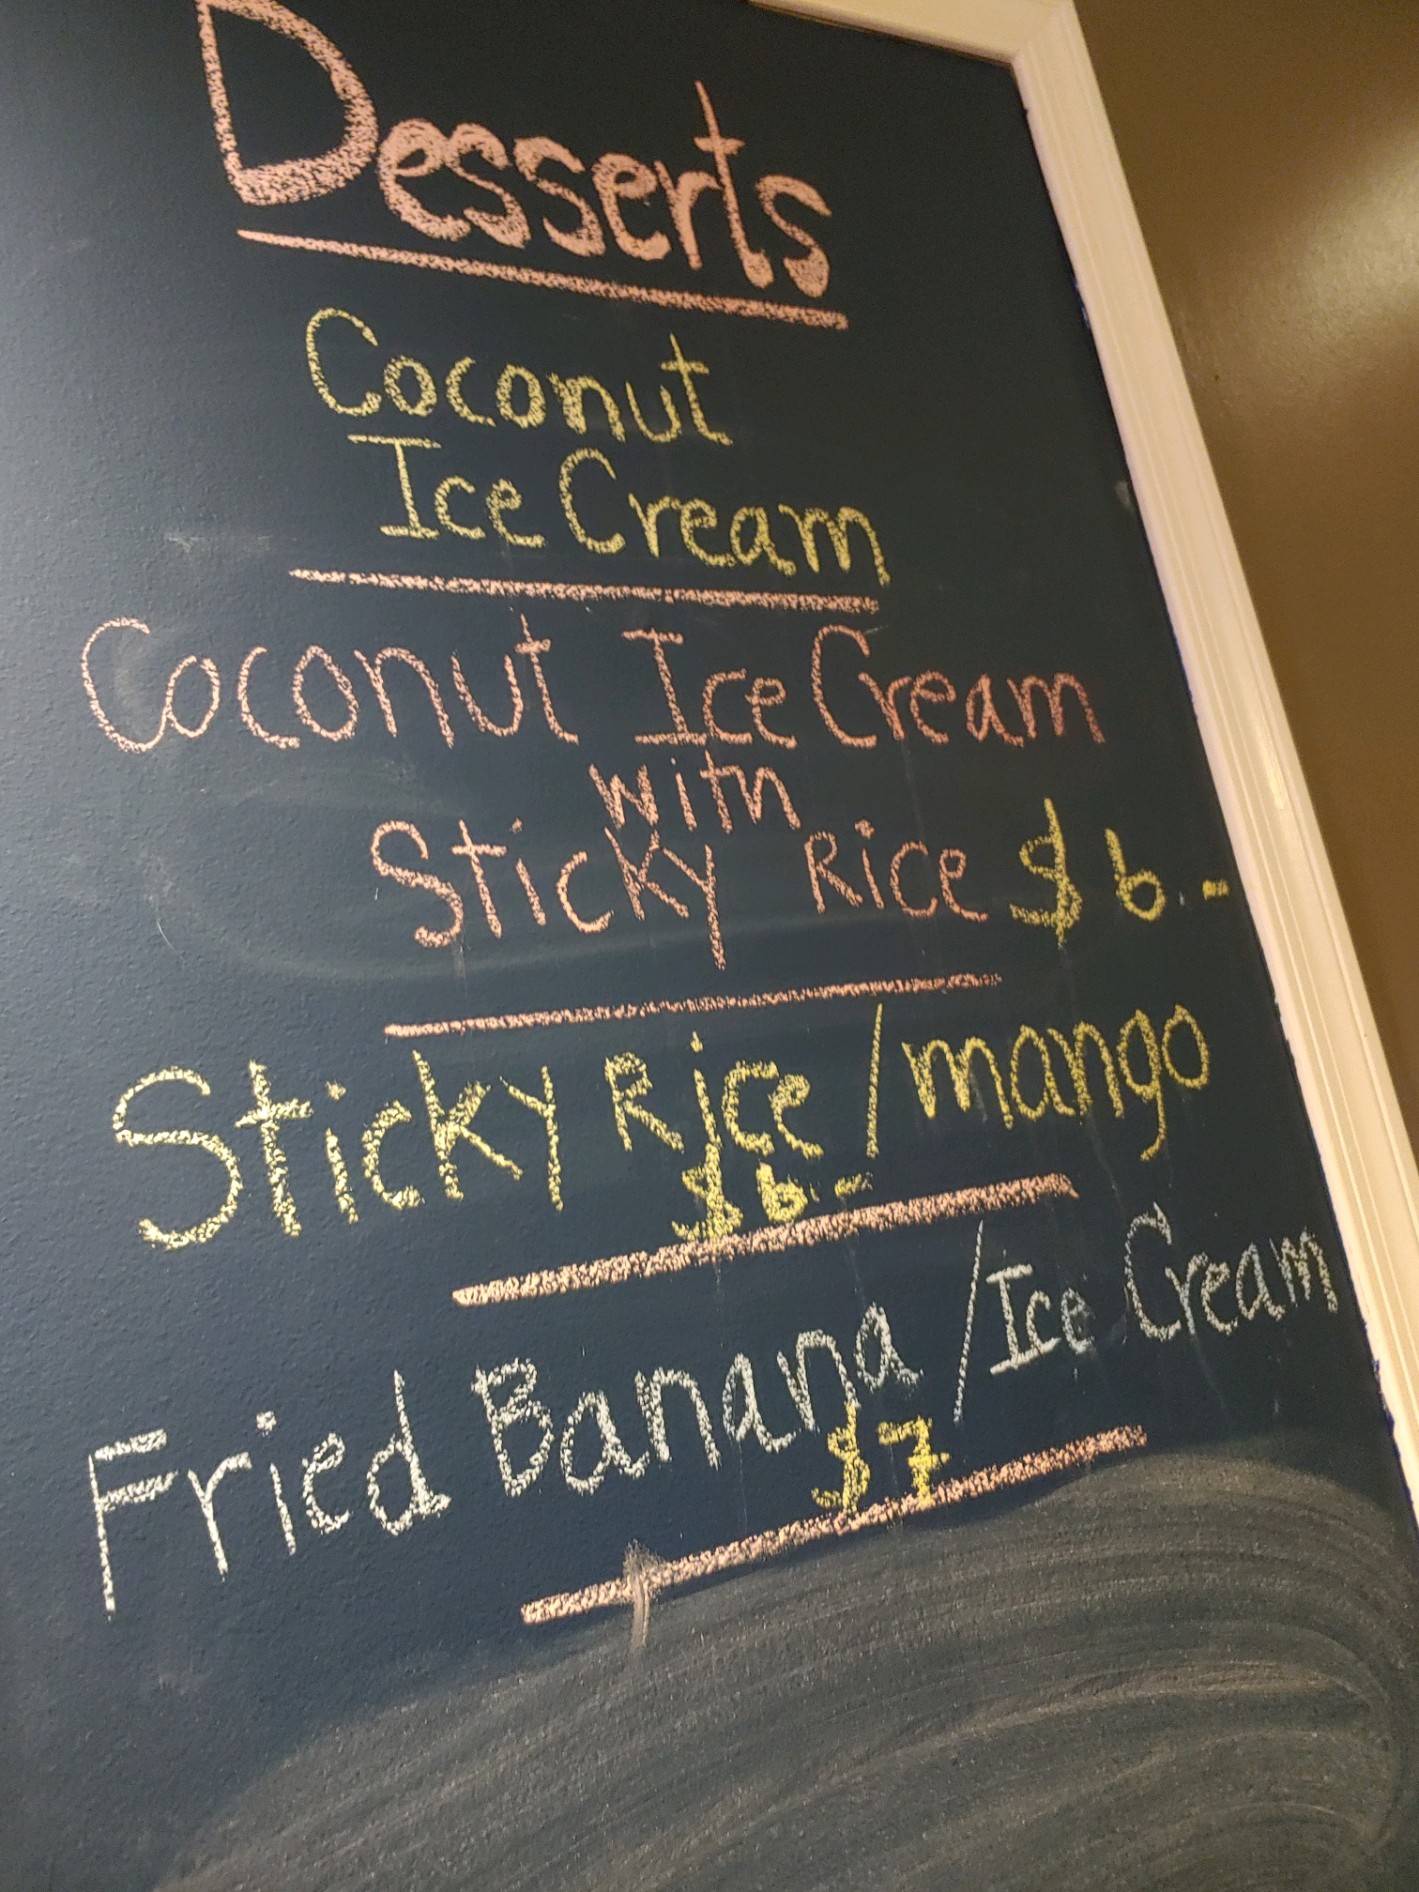 Desserts
Coconut
Ice Cream
Coconut Ice Cream
with
Sticky Rice $6.-
Sticky Rice/mango
$6.-
Fried Banana/Ice Cream
$7